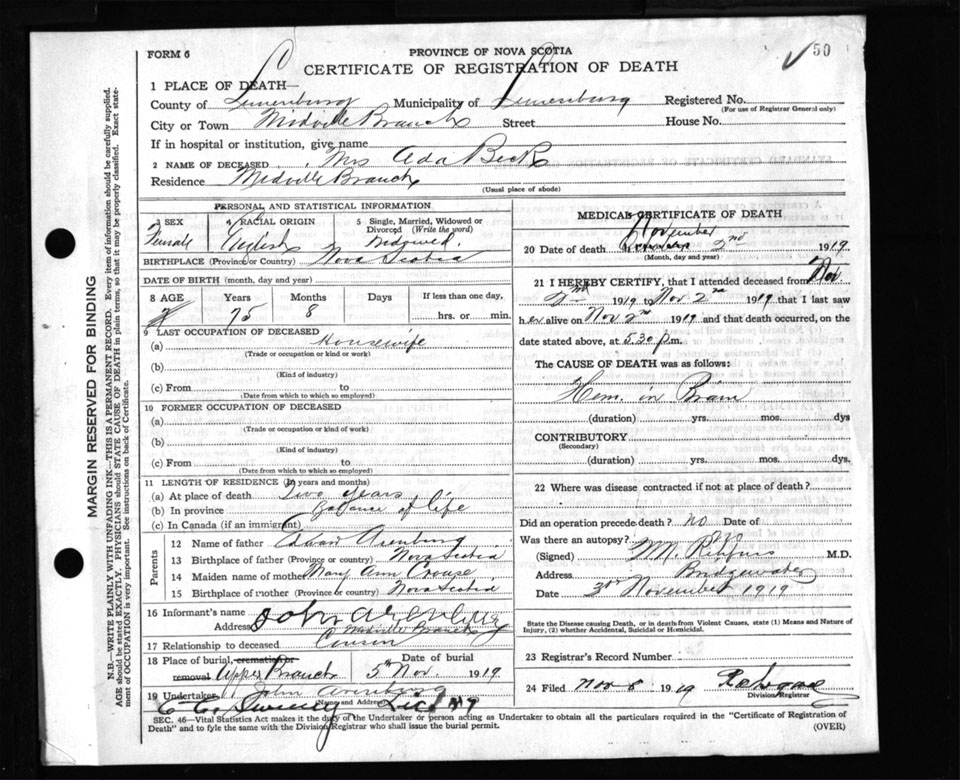 50
FORM 6
PROVINCE OF NOVA SCOTIA
CERTIFICATE OF REGISTRATION OF DEATH
1 PLACE OF DEATH—
County of Lunenburg Municipality of Lunenburg Registered No.
(For use of Registrar General only)
City or Town Midville Branch Street House No.
If in hospital or institution, give name
2 NAME OF DECEASED Mrs Ada Beck
Residence Midville Branch
(Usual place of abode)
PERSONAL AND STATISTICAL INFORMATION
3 SEX 4 RACIAL ORIGIN 5 Single, Married, Widowed or Divorced (Write the word)
Female English
BIRTHPLACE (Province or Country) Nova Scotia
DATE OF BIRTH (month, day and year)
8 AGE Years Months Days If less than one day,
75 8 hrs. or min.
9 LAST OCCUPATION OF DECEASED
(a) Housewife
(Trade or occupation or kind or work)
(b)
(Kind of industry)
(c) From to
(Date from which to which so employed)
10 FORMER OCCUPATION OF DECEASED
(a)
(Trade or occupation or kind of work)
(b)
(Kind of industry)
(c) From to
(Date from which to which so employed)
11 LENGTH OF RESIDENCE (in years and months)
(a) At place of death Two years
(b) In province Balance of life
(c) In Canada (if an immigrant)
Parents
12 Name of father Edward Arenburg
13 Birthplace of father (Province or country) Nova Scotia
14 Maiden name of mother Mary Ann Crouse
15 Birthplace of mother (Province or country) Nova Scotia
16 Informant's name John Arenburg
Address Midville Branch
17 Relationship to deceased Cousin
18 Place of burial, cremation or removal Upper Branch Date of burial 5th Nov. 1919
19 Undertaker John Arenburg
(Name and Address)
MEDICAL CERTIFICATE OF DEATH
November
20 Date of death 2nd 1919
(Month, day and year)
21 I HEREBY CERTIFY, that I attended deceased from Nov
2nd 1919 Nov 2nd 1919 that I last saw
her alive on Nov 2nd 1919 and that death occurred, on
the date stated above, at 5.30 p.m.
The CAUSE OF DEATH was as follows:
Hem. in Brain
(duration) yrs. mos. dys
CONTRIBUTORY
(Secondary)
(duration) yrs. mos. dys.
22 Where was disease contracted if not at place of death?
Did an operation precede death? no Date of
Was there an autopsy? no
(Signed) M.D.
Address Bridgewater
Date 3rd November 1919
State the Disease causing Death, or in deaths from Violent Causes, state (1) Means and Nature of
Injury, (2) whether Accidental, Suicidal or Homicidal.
23 Registrar's Record Number
24 Filed Nov 8 1919
Division Registrar
SEC. 46—Vital Statistics Act makes it the duty of the Undertaker or person acting as Undertaker to obtain all the particulars required in the "Certificate of Registration of
Death" and to fyle the same with the Division Registrar who shall issue the burial permit.
(OVER)
MARGIN RESERVED FOR BINDING
N.B.—WRITE PLAINLY WITH UNFADING INK—THIS IS A PERMANENT RECORD. Every item of information should be carefully supplied.
AGE should be stated EXACTLY. PHYSICIANS should STATE CAUSE OF DEATH in plain terms, so that it may be properly classified. Exact statement
of OCCUPATION is very important. See instructions on back of Certificate.